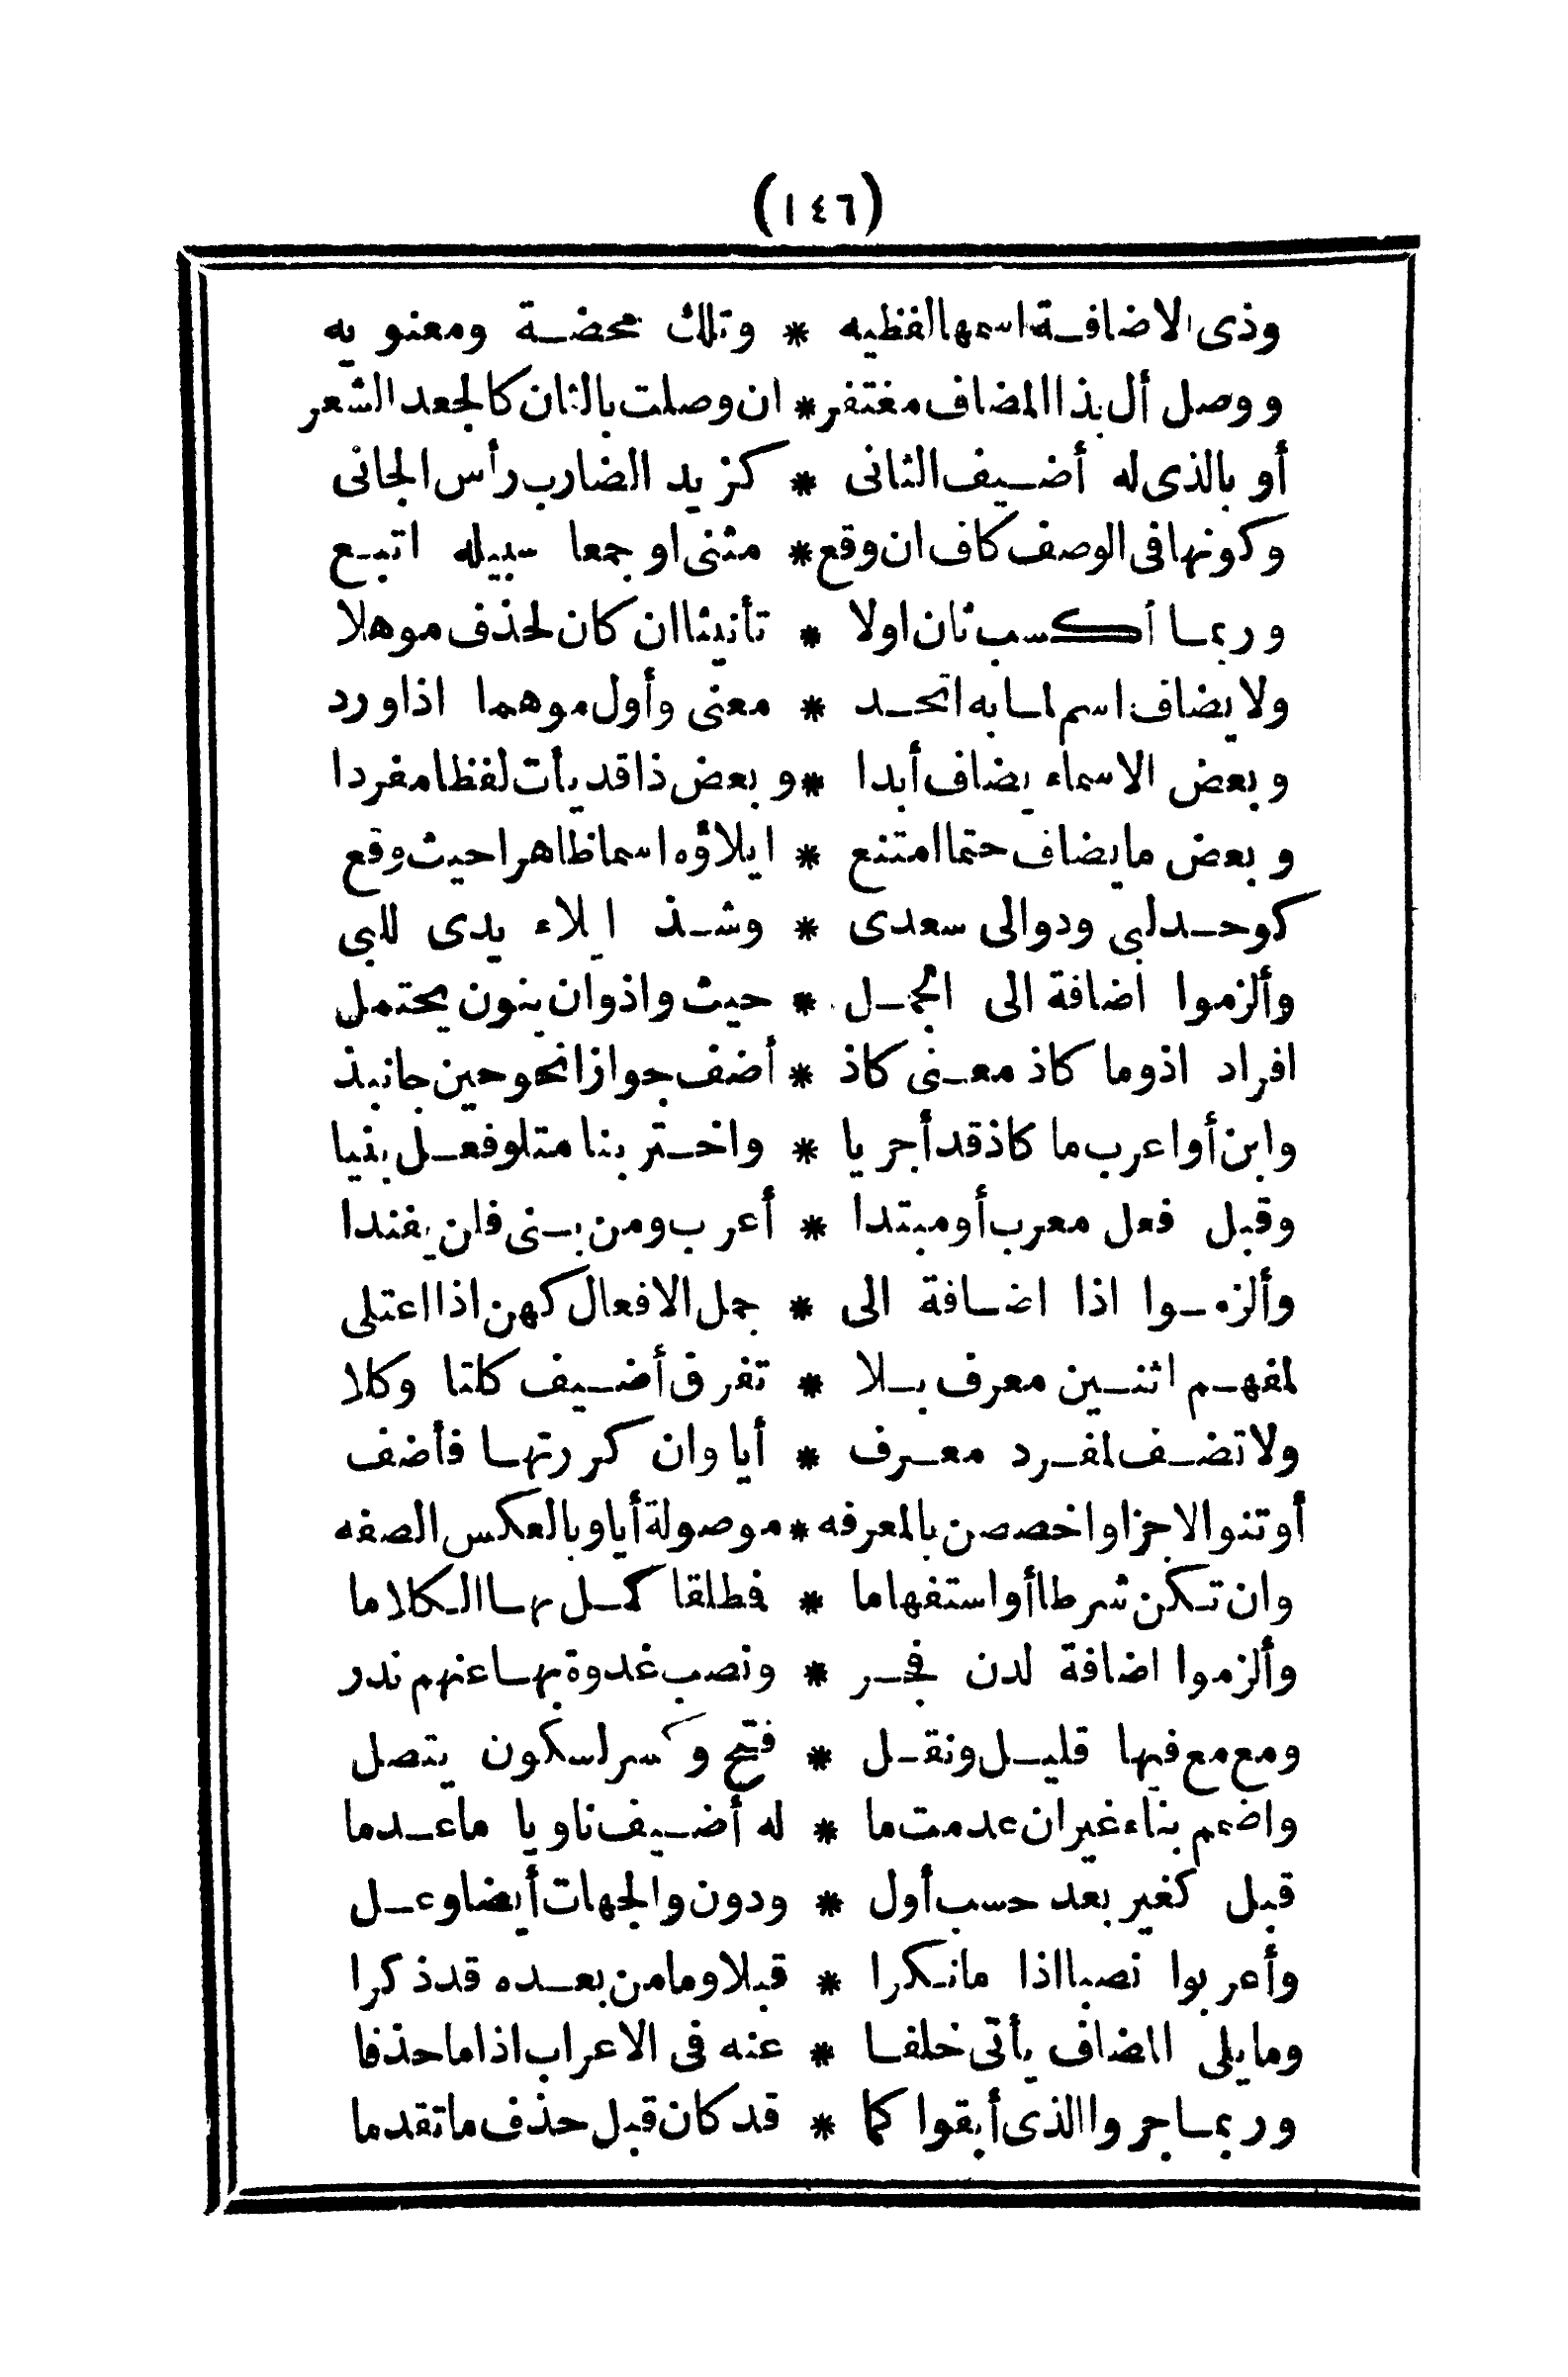 (١٤٦)
وذى الاضافة اسمها لفظيه * وتلك محضة ومعنويه
ووصل أل بذا المضاف مغتفر * ان وصلت بالثان كالجعد الشعر
أو بالذى له أضيف الثانى * كزيد الضارب رأس الجانى
وكونها فى الوصف كاف ان وقع * مثنى او جمعا سبيله اتبع
وربما أكسب ثان اولا * تأنيثا ان كان لحذف موهلا
ولا يضاف اسم لما به اتحد * معنى وأول موهما اذا ورد
وبعض الاسماء يضاف أبدا * وبعض ذا قد يأت لفظا مفردا
وبعض ما يضاف حتما امتنع * ايلاؤه اسما ظاهرا حيث وقع
كوحد لبى ودوالى سعدى * وشذ ايلاء يدى للبى
وألزموا اضافة الى الجمل * حيث واذ وان ينون يحتمل
افراد اذ وما كاذ معنى كاذ * أضف جوازا نحو حين جا نبذ
وابن أو اعرب ما كاذ قد أجريا * واختر بنا متلو فعل بنيا
وقبل فعل معرب أو مبتدا * أعرب ومن بنى فلن يفندا
وألزموا اذا اضافة الى * جمل الافعال كهن اذا اعتلى
لمفهم اثنين معرف بلا * تفرق أضيف كلتا وكلا
ولا تضف لمفرد معرف * أيا وان كررتها فأضف
أو تنو الاجزا واخصصن بالمعرفه * موصولة أيا وبالعكس الصفه
وان تكن شرطا أو استفهاما * فمطلقا كمل بها الكلاما
وألزموا اضافة لدن فجر * ونصب غدوة بها عنهم ندر
ومع مع فيها قليل ونقل * فتح وكسر لسكون يتصل
واضمم بناء غير ان عدمت ما * له أضيف ناويا ما عدما
قبل كغير بعد حسب أول * ودون والجهات أيضا وعل
وأعربوا نصبا اذا ما نكرا * قبلا وما من بعده قد ذكرا
وما يلى المضاف يأتى خلفا * عنه فى الاعراب اذا ما حذفا
وربما جروا الذى أبقوا كما * قد كان قبل حذف ما تقدما